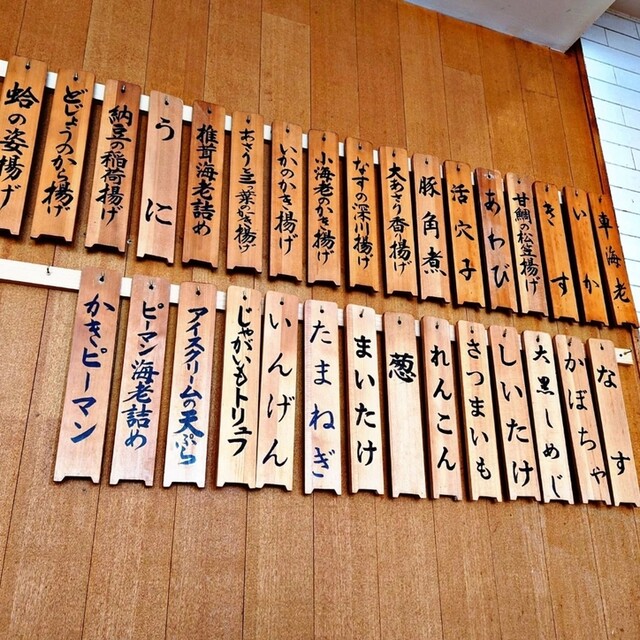 車海老
いか
きす
甘鯛の松笠揚げ
あわび
活穴子
豚角煮
大あさり香り揚げ
なすの深川揚げ
小海老のかき揚げ
いかのかき揚げ
あさり三つ葉のかき揚げ
椎茸海老詰め
うに
納豆の稲荷揚げ
どじょうのから揚げ
蛤の姿揚げ
なす
かぼちゃ
大黒しめじ
しいたけ
さつまいも
れんこん
葱
まいたけ
たまねぎ
いんげん
じゃがいもトリュフ
アイスクリームの天ぷら
ピーマン海老詰め
かきピーマン